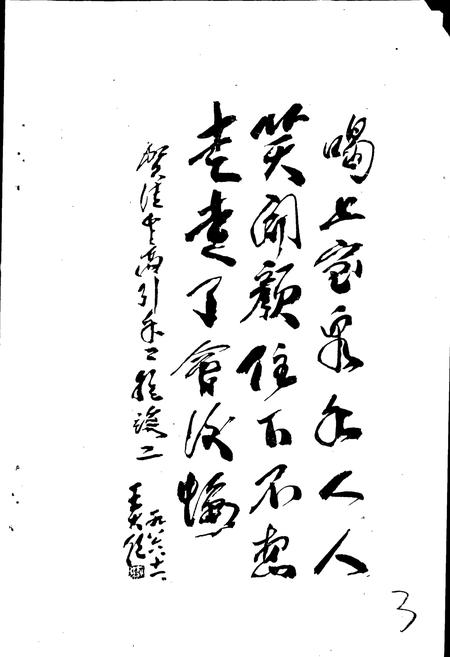 喝上宝泉水人人
笑开颜住下不想
走走了会后悔
贺清中高引水工程竣工
王大任
一九八六、十二
3